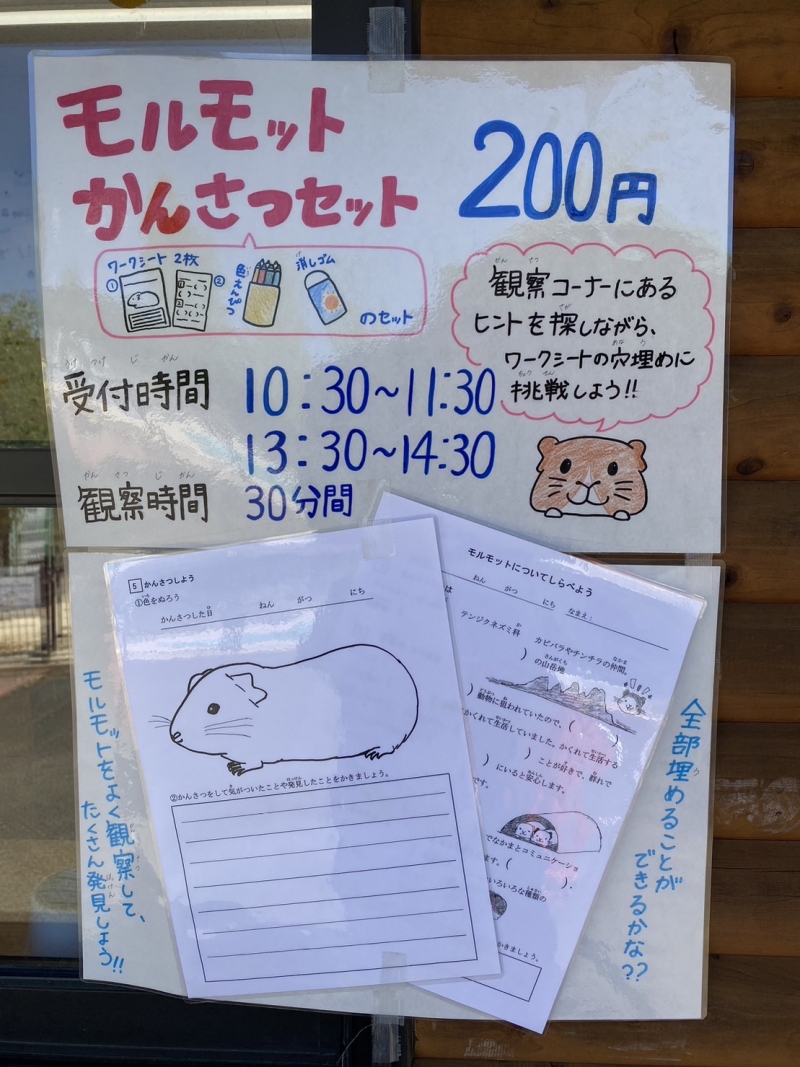 モルモット
かんさつセット
200円
ワークシート 2枚
① ②
色えんぴつ
消しゴム
のセット
観察コーナーにある
ヒントを探しながら、
ワークシートの穴埋めに
挑戦しよう!!
受付時間 10:30~11:30
13:30~14:30
観察時間 30分間
5 かんさつしよう
①色をぬろう
かんさつした日 ねん がつ にち
②かんさつをして気がついたことや発見したことをかきましょう。
モルモットについてしらべよう
は ねん がつ にち なまえ:
テンジクネズミ科 カピバラやチンチラの仲間。
)の山岳地
)動物に狙われていたので、( )
かくれて生活していました。かくれて生活する
)ことが好きで、群れで
)にいると安心します。
です。
でなかまとコミュニケーショ
ます。( ).
いろいろな種類の
かきましょう。
モルモットをよく観察して、
たくさん発見しよう!!
全部埋めることが
できるかな??